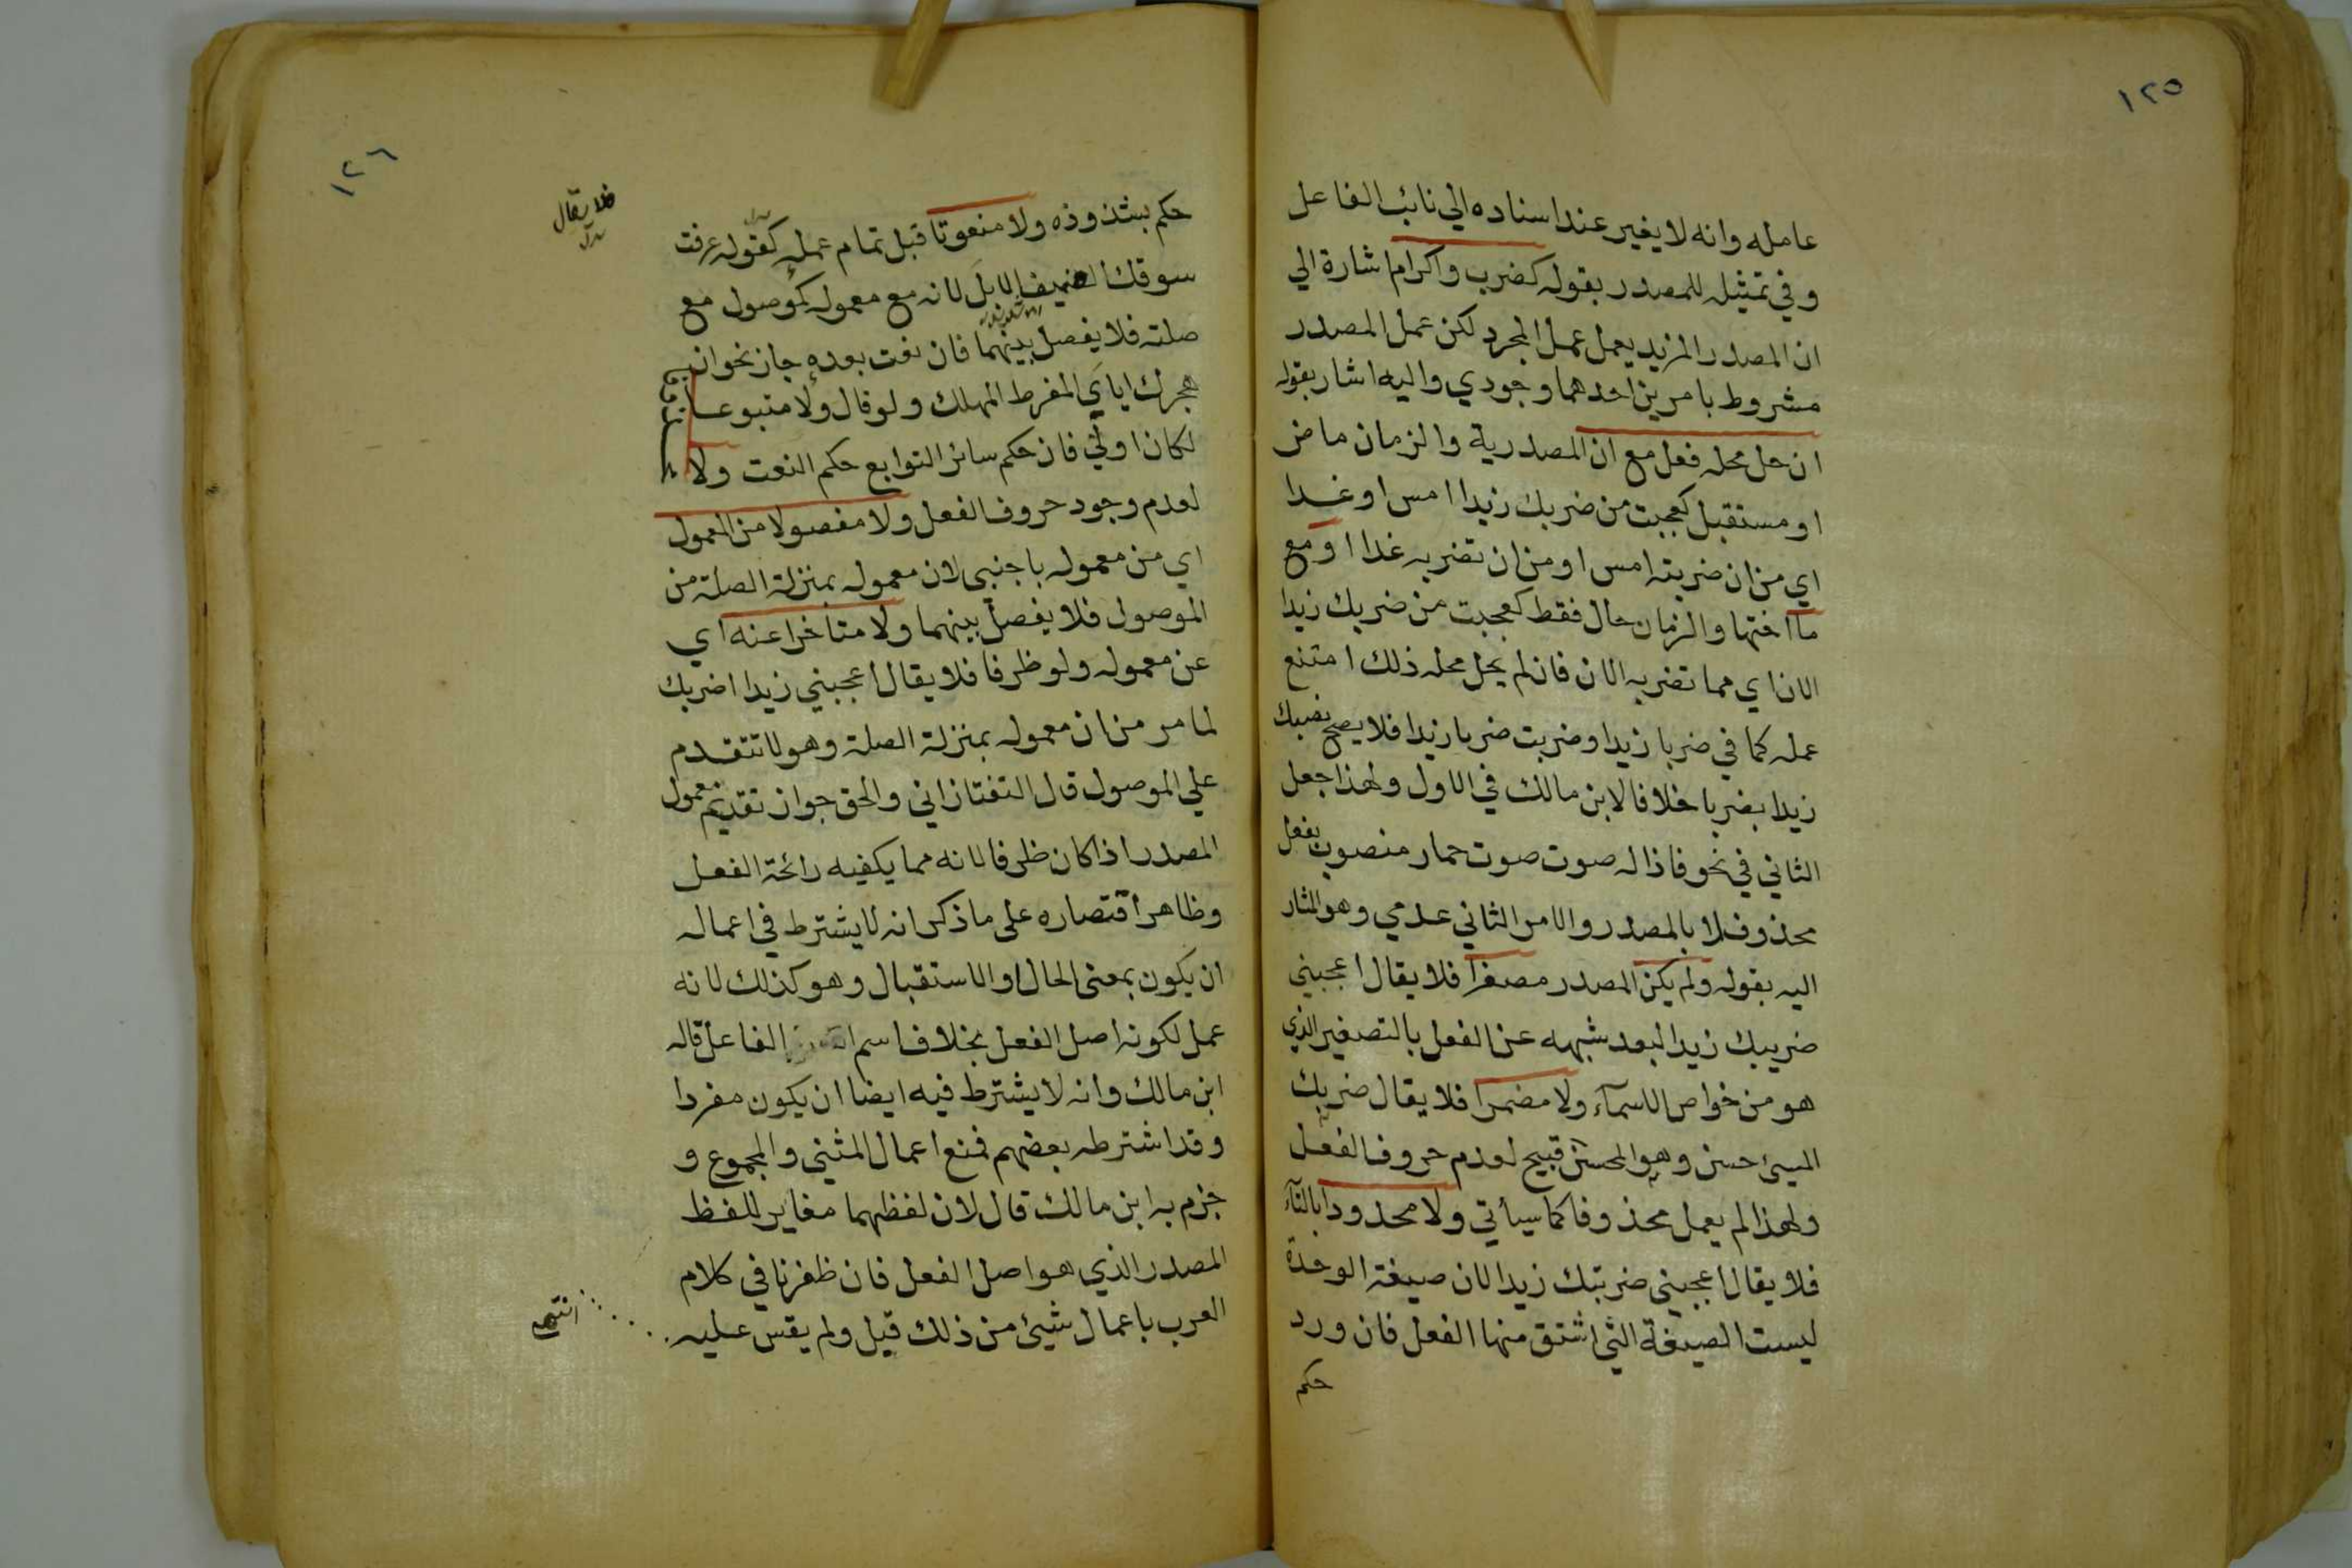 ١٢٥
عامله وانه لا يغير عند اسناده الي نائب الفاعل
وفي تمثيله للمصدر بقوله كضرب واكرام اشارة الي
ان المصدر المزيد يعمل عمل المجرد لكن عمل المصدر
مشروط بامرين احدهما وجودي واليه اشار بقوله
ان حل محله فعل مع ان المصدرية والزمان ماض
او مستقبل كعجبت من ضربك زيدا امس او غدا
اي من ان ضربته امس او من ان تضربه غدا او مع
ما اختها والزمان حال فقط كعجبت من ضربك زيدا
الان اي مما تضربه الان فان لم يحل محله ذلك امتنع
عمله كما في ضربا زيدا وضربت ضربا زيدا فلا يصح نصبك
زيدا بضربا خلافا لابن مالك في الاول ولهذا جعل
الثاني في نحو فاذا له صوت صوت حمار منصوب بفعل
محذوف لا بالمصدر والامر الثاني عدمي وهو المشار
اليه بقوله ولم يكن المصدر مصغرا فلا يقال اعجبني
ضريبك زيدا لبعد شبهه عن الفعل بالتصغير الذي
هو من خواص الاسمآء ولا مضمرا فلا يقال ضربك
المسئ حسن وهو المحسن قبيح لعدم حروف الفعل
ولهذا لم يعمل محذوفا كما سيأتي ولا محدودا بالتآء
فلا يقال اعجبني ضربتك زيدا لان صيغة الوحدة
ليست الصيغة التي اشتق منها الفعل فان ورد
حكم
١٢٦
حكم بشذوذه ولا منعوتا قبل تمام عمله كقوله عرفت
فلا يقال
بدل
سوقك العنيف الابل لانه مع معموله كموصول مع
صلته فلا يفصل بينهما فان نعت بعده جاز نحو ان
هجرك اياي المفرط المهلك ولو قال ولا متبوعا
لكان اولي فان حكم سائر التوابع حكم النعت ولا
لعدم وجود حروف الفعل ولا مفصولا من المعمول
اي من معموله باجنبي لان معموله بمنزلة الصلة من
الموصول فلا يفصل بينهما ولا متاخرا عنه اي
عن معموله ولو ظرفا فلا يقال اعجبني زيدا ضربك
لما مر من ان معموله بمنزلة الصلة وهو لا تتقدم
علي الموصول قال التفتازاني والحق جواز تقديم معمول
المصدر اذا كان ظرفا لانه مما يكفيه رائحة الفعل
وظاهر اقتصاره على ما ذكر انه لا يشترط في اعماله
ان يكون بمعنى الحال او الاستقبال وهو كذلك لانه
عمل لكونه اصل الفعل بخلاف اسم الفاعل قاله
ابن مالك وانه لا يشترط فيه ايضا ان يكون مفردا
وقد اشترطه بعضهم فمنع اعمال المثنى والمجموع و
جزم به ابن مالك قال لان لفظهما مغاير للفظ
المصدر الذي هو اصل الفعل فان ظفرنا في كلام
العرب باعمال شيئ من ذلك قبل ولم يقس عليه
انتهى